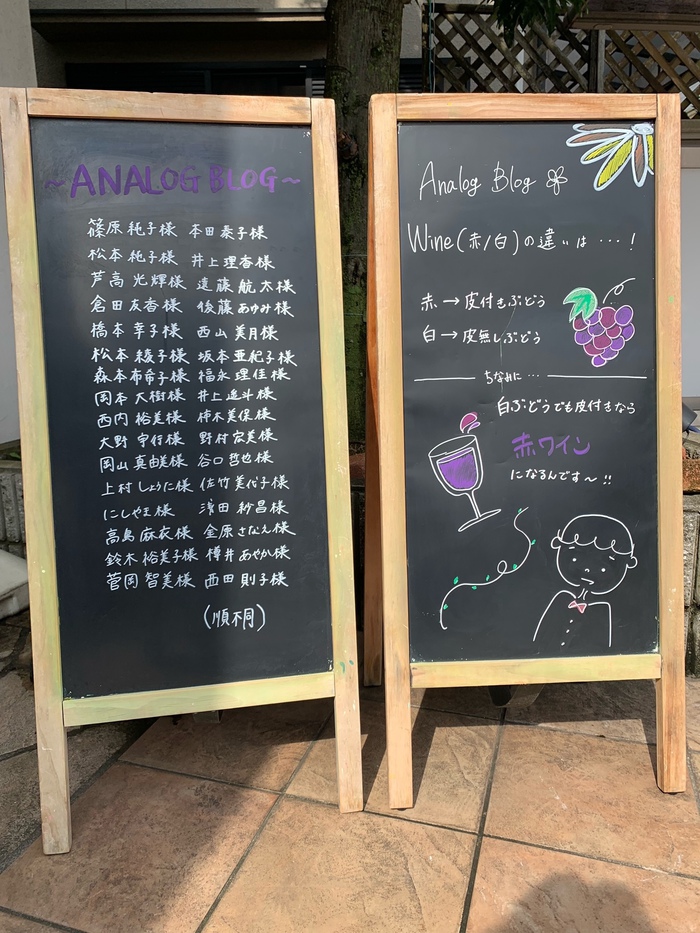 ~ANALOG BLOG~
篠原 純子様 本田 泰子様
松本 純子様 井上 理香様
芦高 光輝様 遠藤 航太様
倉田 友香様 後藤 あゆみ様
橋本 幸子様 西山 美月様
松本 綾子様 坂本 亜紀子様
森本 布希子様 福永 理佳様
岡本 大樹様 井上 進斗様
西内 裕美様 柿木 美保様
大野 宇行様 野村 宏美様
岡山 真由美様 谷口 哲也様
上村 しょうに様 佐竹 美代子様
にしやま様 濱田 紗昌様
高島 麻衣様 金原 さなえ様
鈴木 裕美子様 樽井 あやか様
菅岡 智美様 西田 則子様
(順不同)
Analog Blog
Wine(赤/白)の違いは…!
赤→皮付きぶどう
白→皮無しぶどう
ちなみに…
白ぶどうでも皮付きなら
赤ワイン
になるんです〜!!